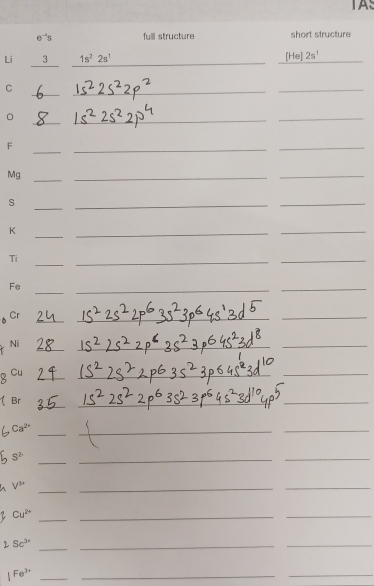 TAS
e⁻s full structure short structure
Li 3 1s² 2s¹ [He] 2s¹
C 6 1s² 2s² 2p²
O 8 1s² 2s² 2p⁴
F
Mg
S
K
Ti
Fe
Cr 24 1s² 2s² 2p⁶ 3s² 3p⁶ 4s¹ 3d⁵
Ni 28 1s² 2s² 2p⁶ 3s² 3p⁶ 4s² 3d⁸
8 Cu 29 1s² 2s² 2p⁶ 3s² 3p⁶ 4s¹ 3d¹⁰
7 Br 35 1s² 2s² 2p⁶ 3s² 3p⁶ 4s² 3d¹⁰ 4p⁵
6 Ca²⁺
5 S²⁻
4 V³⁺
3 Cu²⁺
2 Sc³⁺
1 Fe³⁺